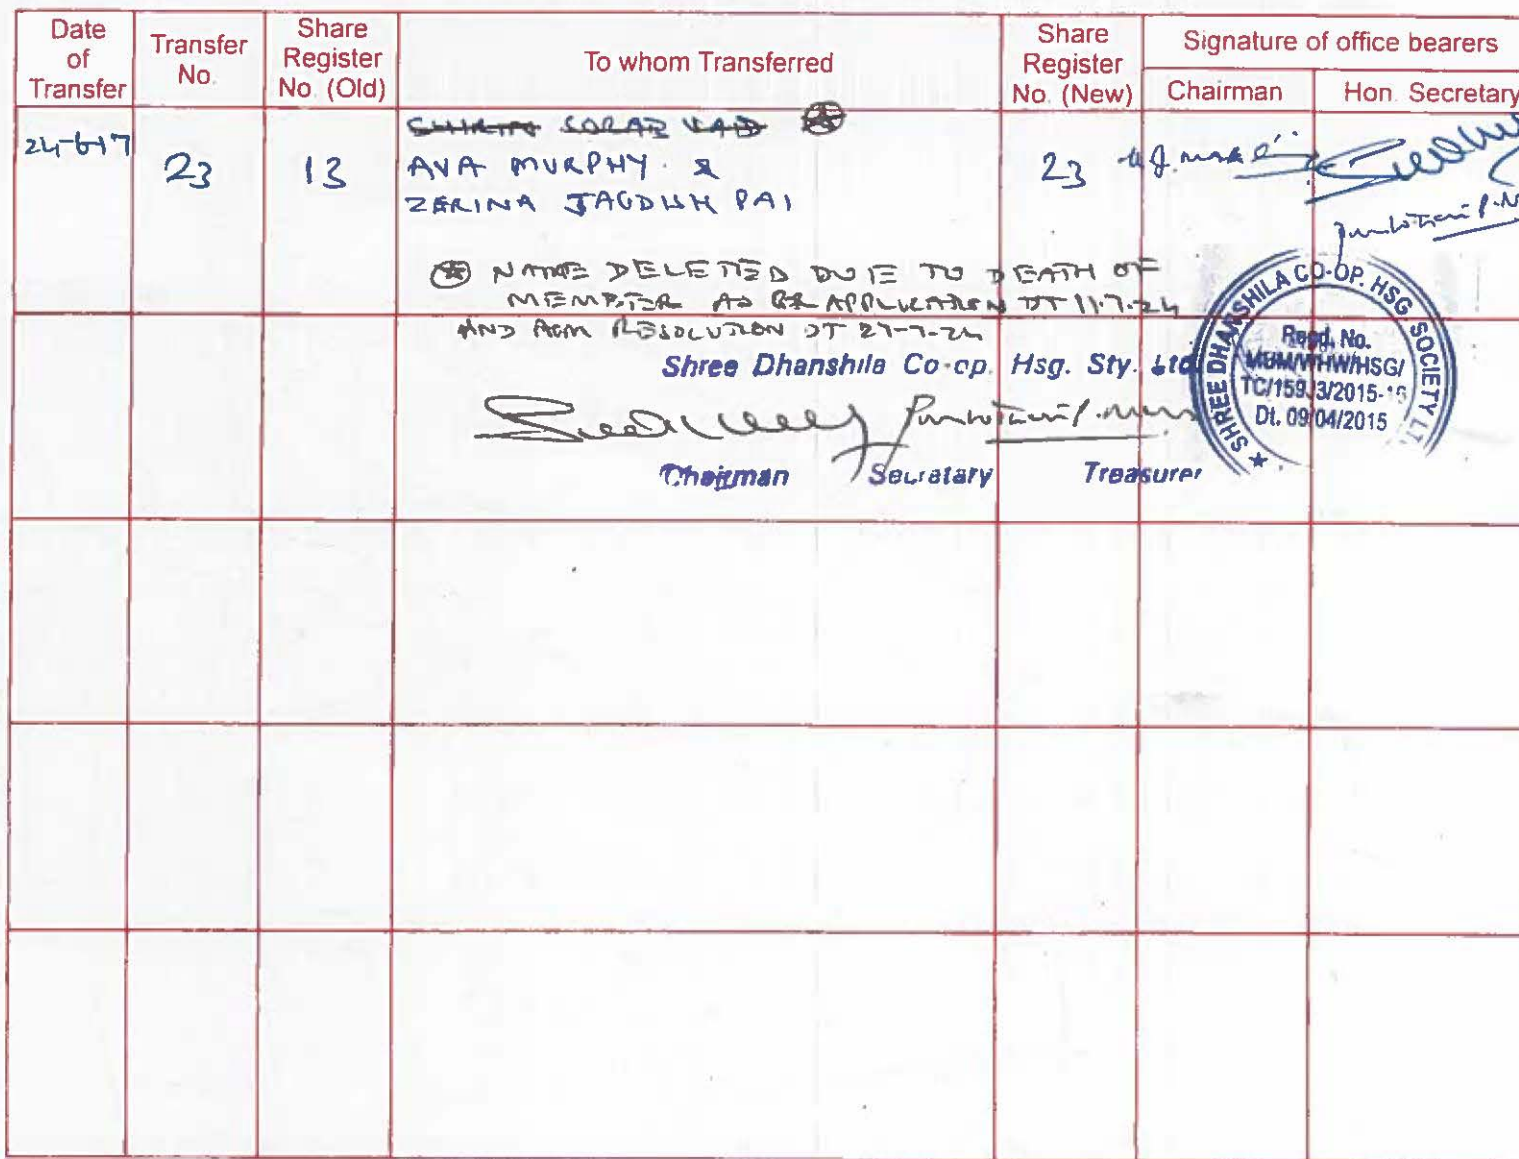 Date of Transfer
Transfer No.
Share Register No. (Old)
To whom Transferred
Share Register No. (New)
Signature of office bearers
Chairman
Hon. Secretary
24-6-17
23
13
SHIRIN SORAB
AVA MURPHY. &
ZERINA JAGDISH PAI
23
NAME DELETED DUE TO DEATH OF
MEMBER AS PER APPLICATION DT 11.7.24
AND AGM RESOLUTION DT
Shree Dhanshila Co-op. Hsg. Sty. Ltd.
Chairman Secretary Treasurer
SHREE DHANSHILA CO-OP. HSG. SOCIETY LT
Regd. No.
MUM/WHW/HSG/
2015-16
Dt. 09/04/2015